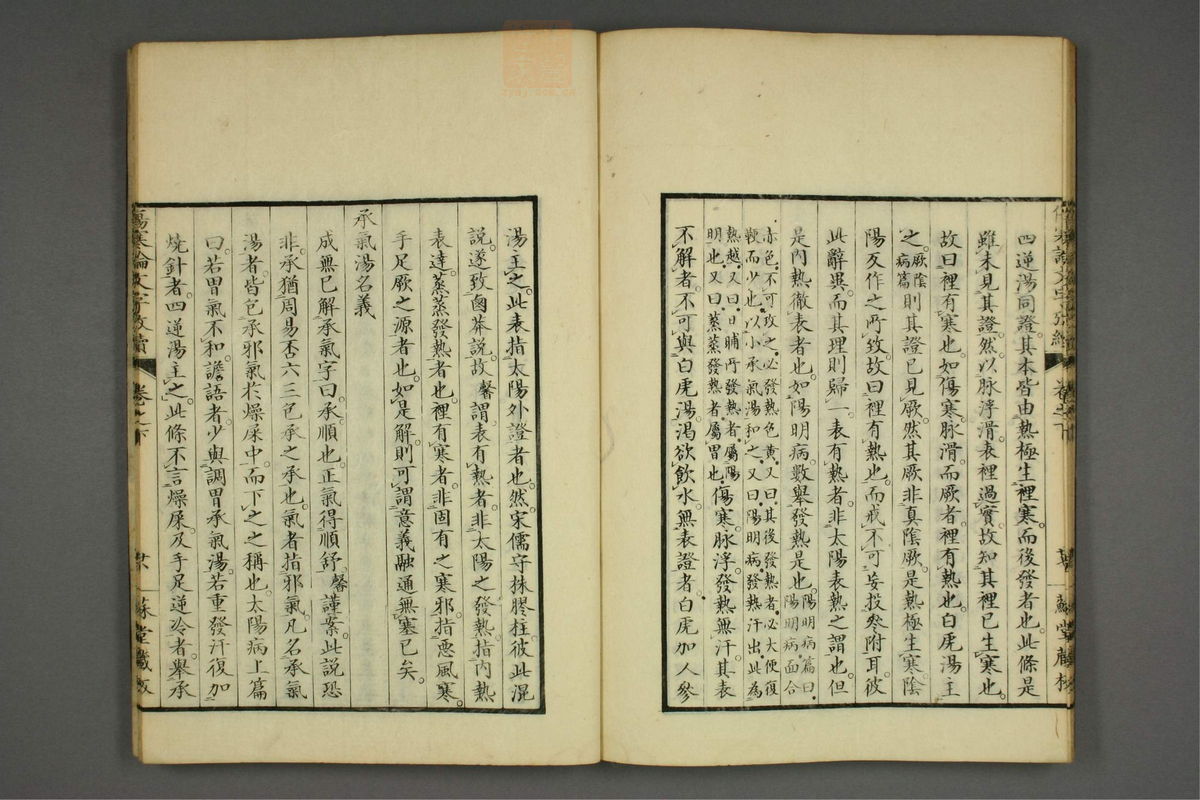 四逆湯同證其本皆由熱極生裡寒而後發者也此條是
雖未見其證然以脉浮滑表裡過實故知其裡已生寒也
故曰裡有寒也如傷寒脉滑而厥者裡有熱也白虎湯主
之厥陰
病篇則其證已見厥然其厥非真陰厥是熱極生寒陰
陽反作之所致故曰裡有熱也而戒不可妄投參附耳彼
此辭異而其理則歸一表有熱者非太陽表熱之謂也但
是內熱徹表者也如陽明病數舉發熱是也陽明病篇曰
陽明病面合
赤色不可攻之必發熱色黃又曰其後發熱者必大便復
鞕而少也以小承氣湯和之又曰陽明病發熱汗出此為
熱越又曰日晡所發熱者屬陽
明也又曰蒸蒸發熱者屬胃也傷寒脉浮發熱無汗其表
不解者不可與白虎湯渴欲飲水無表證者白虎加人參
湯主之此表指太陽外證者也然宋儒守株膠柱彼此混
說遂致鹵莽說故馨謂表有熱者非太陽之發熱指內熱
表達蒸蒸發熱者也裡有寒者非固有之寒邪指惡風寒
手足厥之源者也如是解則可謂意義融通無塞已矣
承氣湯名義
成無已解承氣字曰承順也正氣得順舒馨謹案此說恐
非承猶周易否六三包承之承也氣者指邪氣凡名承氣
湯者皆包承邪氣於燥屎中而下之之稱也太陽病上篇
曰若胃氣不和譫語者少與調胃承氣湯若重發汗復加
燒針者四逆湯主之此條不言燥屎及手足逆冷者舉承
傷寒論文字攷續
卷之下
蘇堂藏板